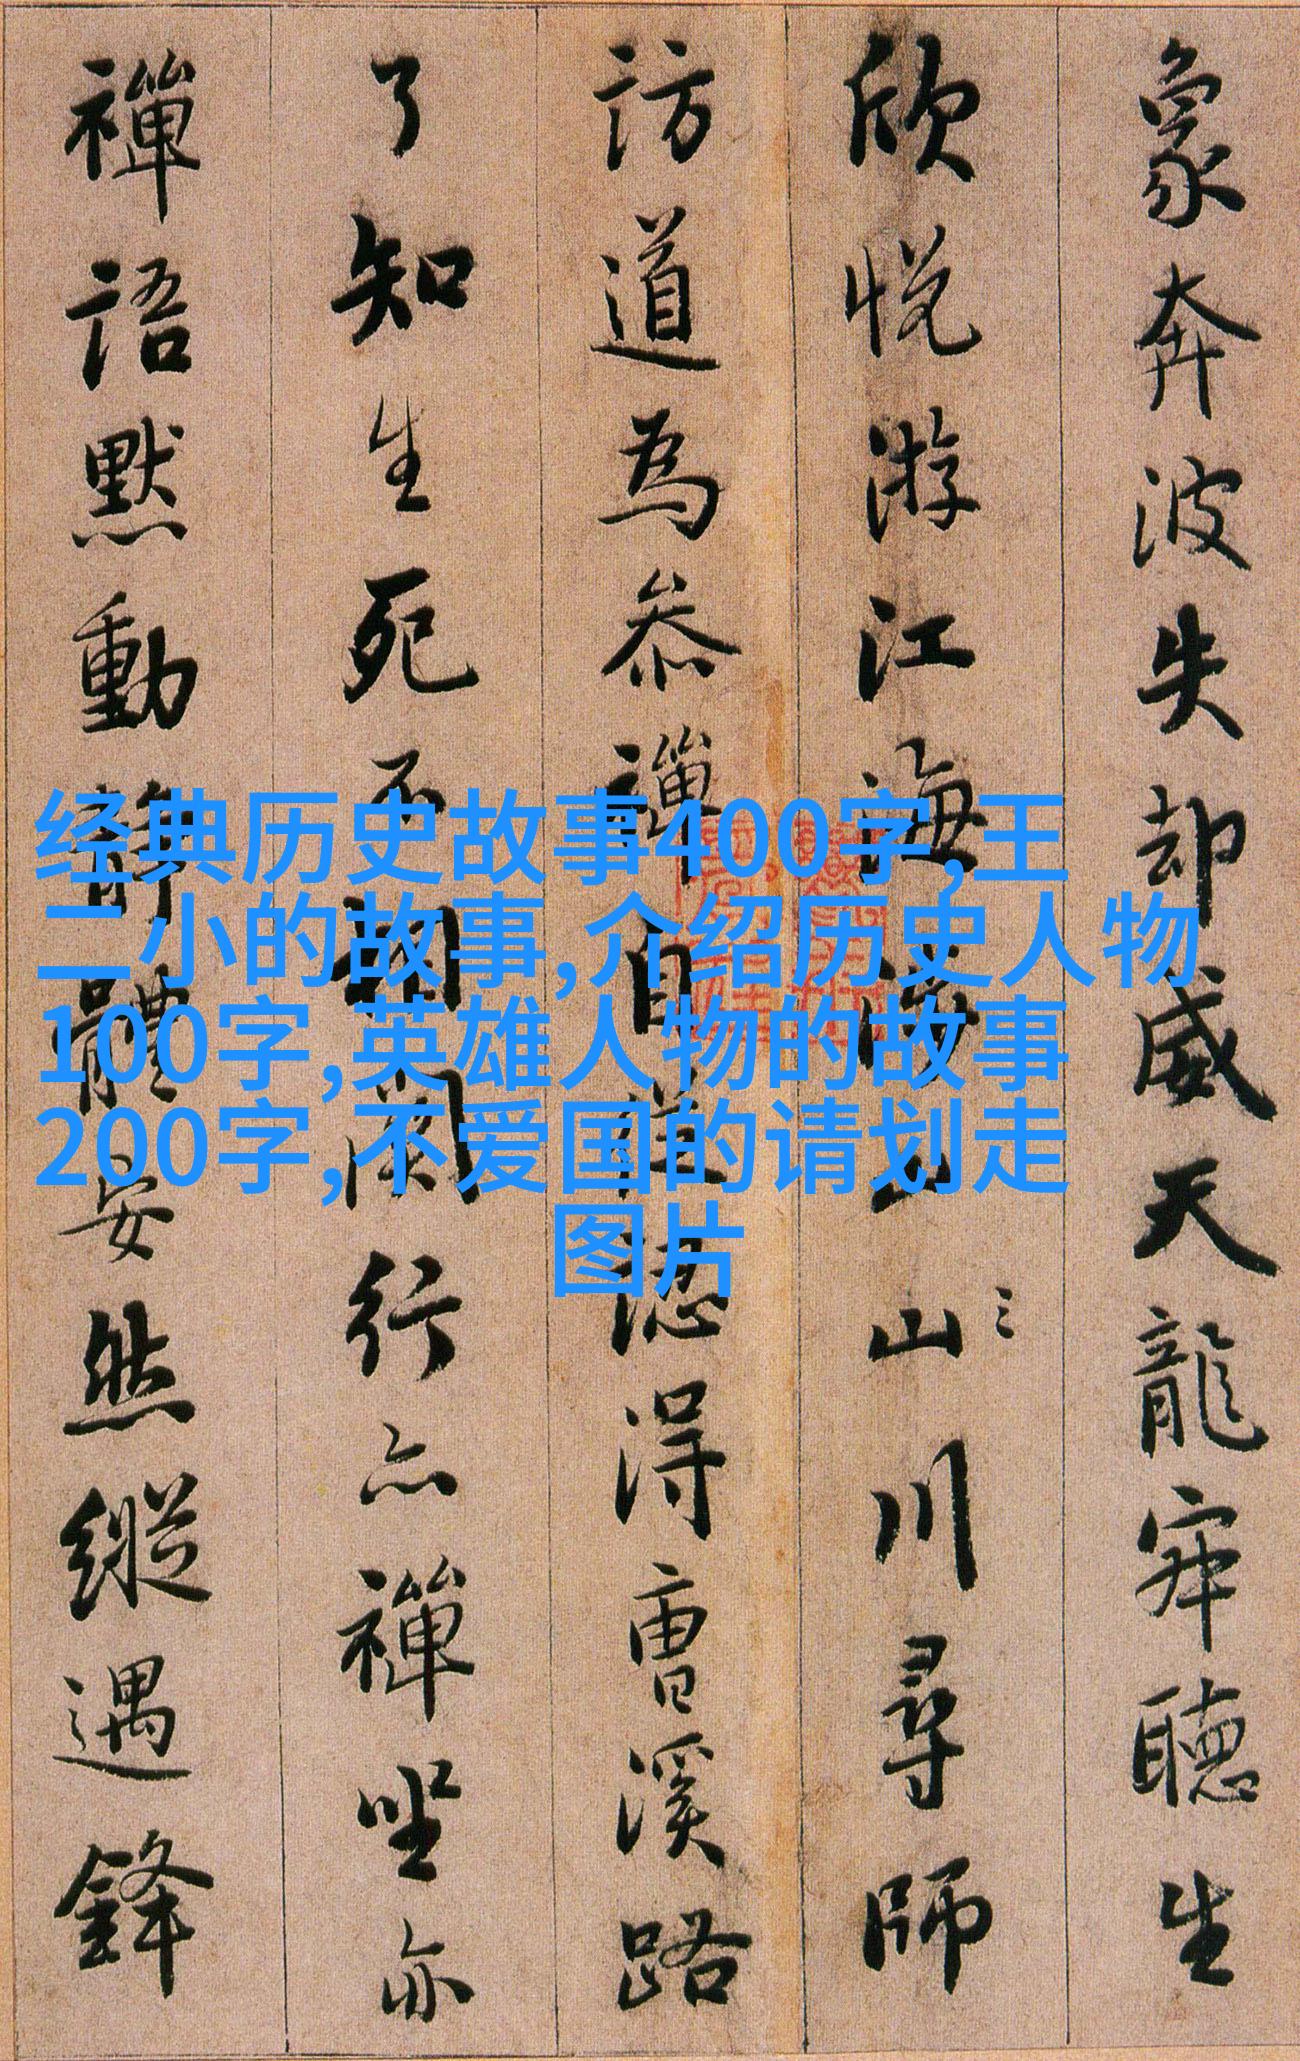 象奔波失却威天龍寂聽生
欣悅游江海山川尋師
訪道為叅禪自從認得曹溪路
了知生死不相關行亦禪坐亦
禪語默動靜體安然縱遇鋒
经典历史故事400字,王
二小的故事,介绍历史人物
100字,英雄人物的故事
200字,不爱国的请划走
图片